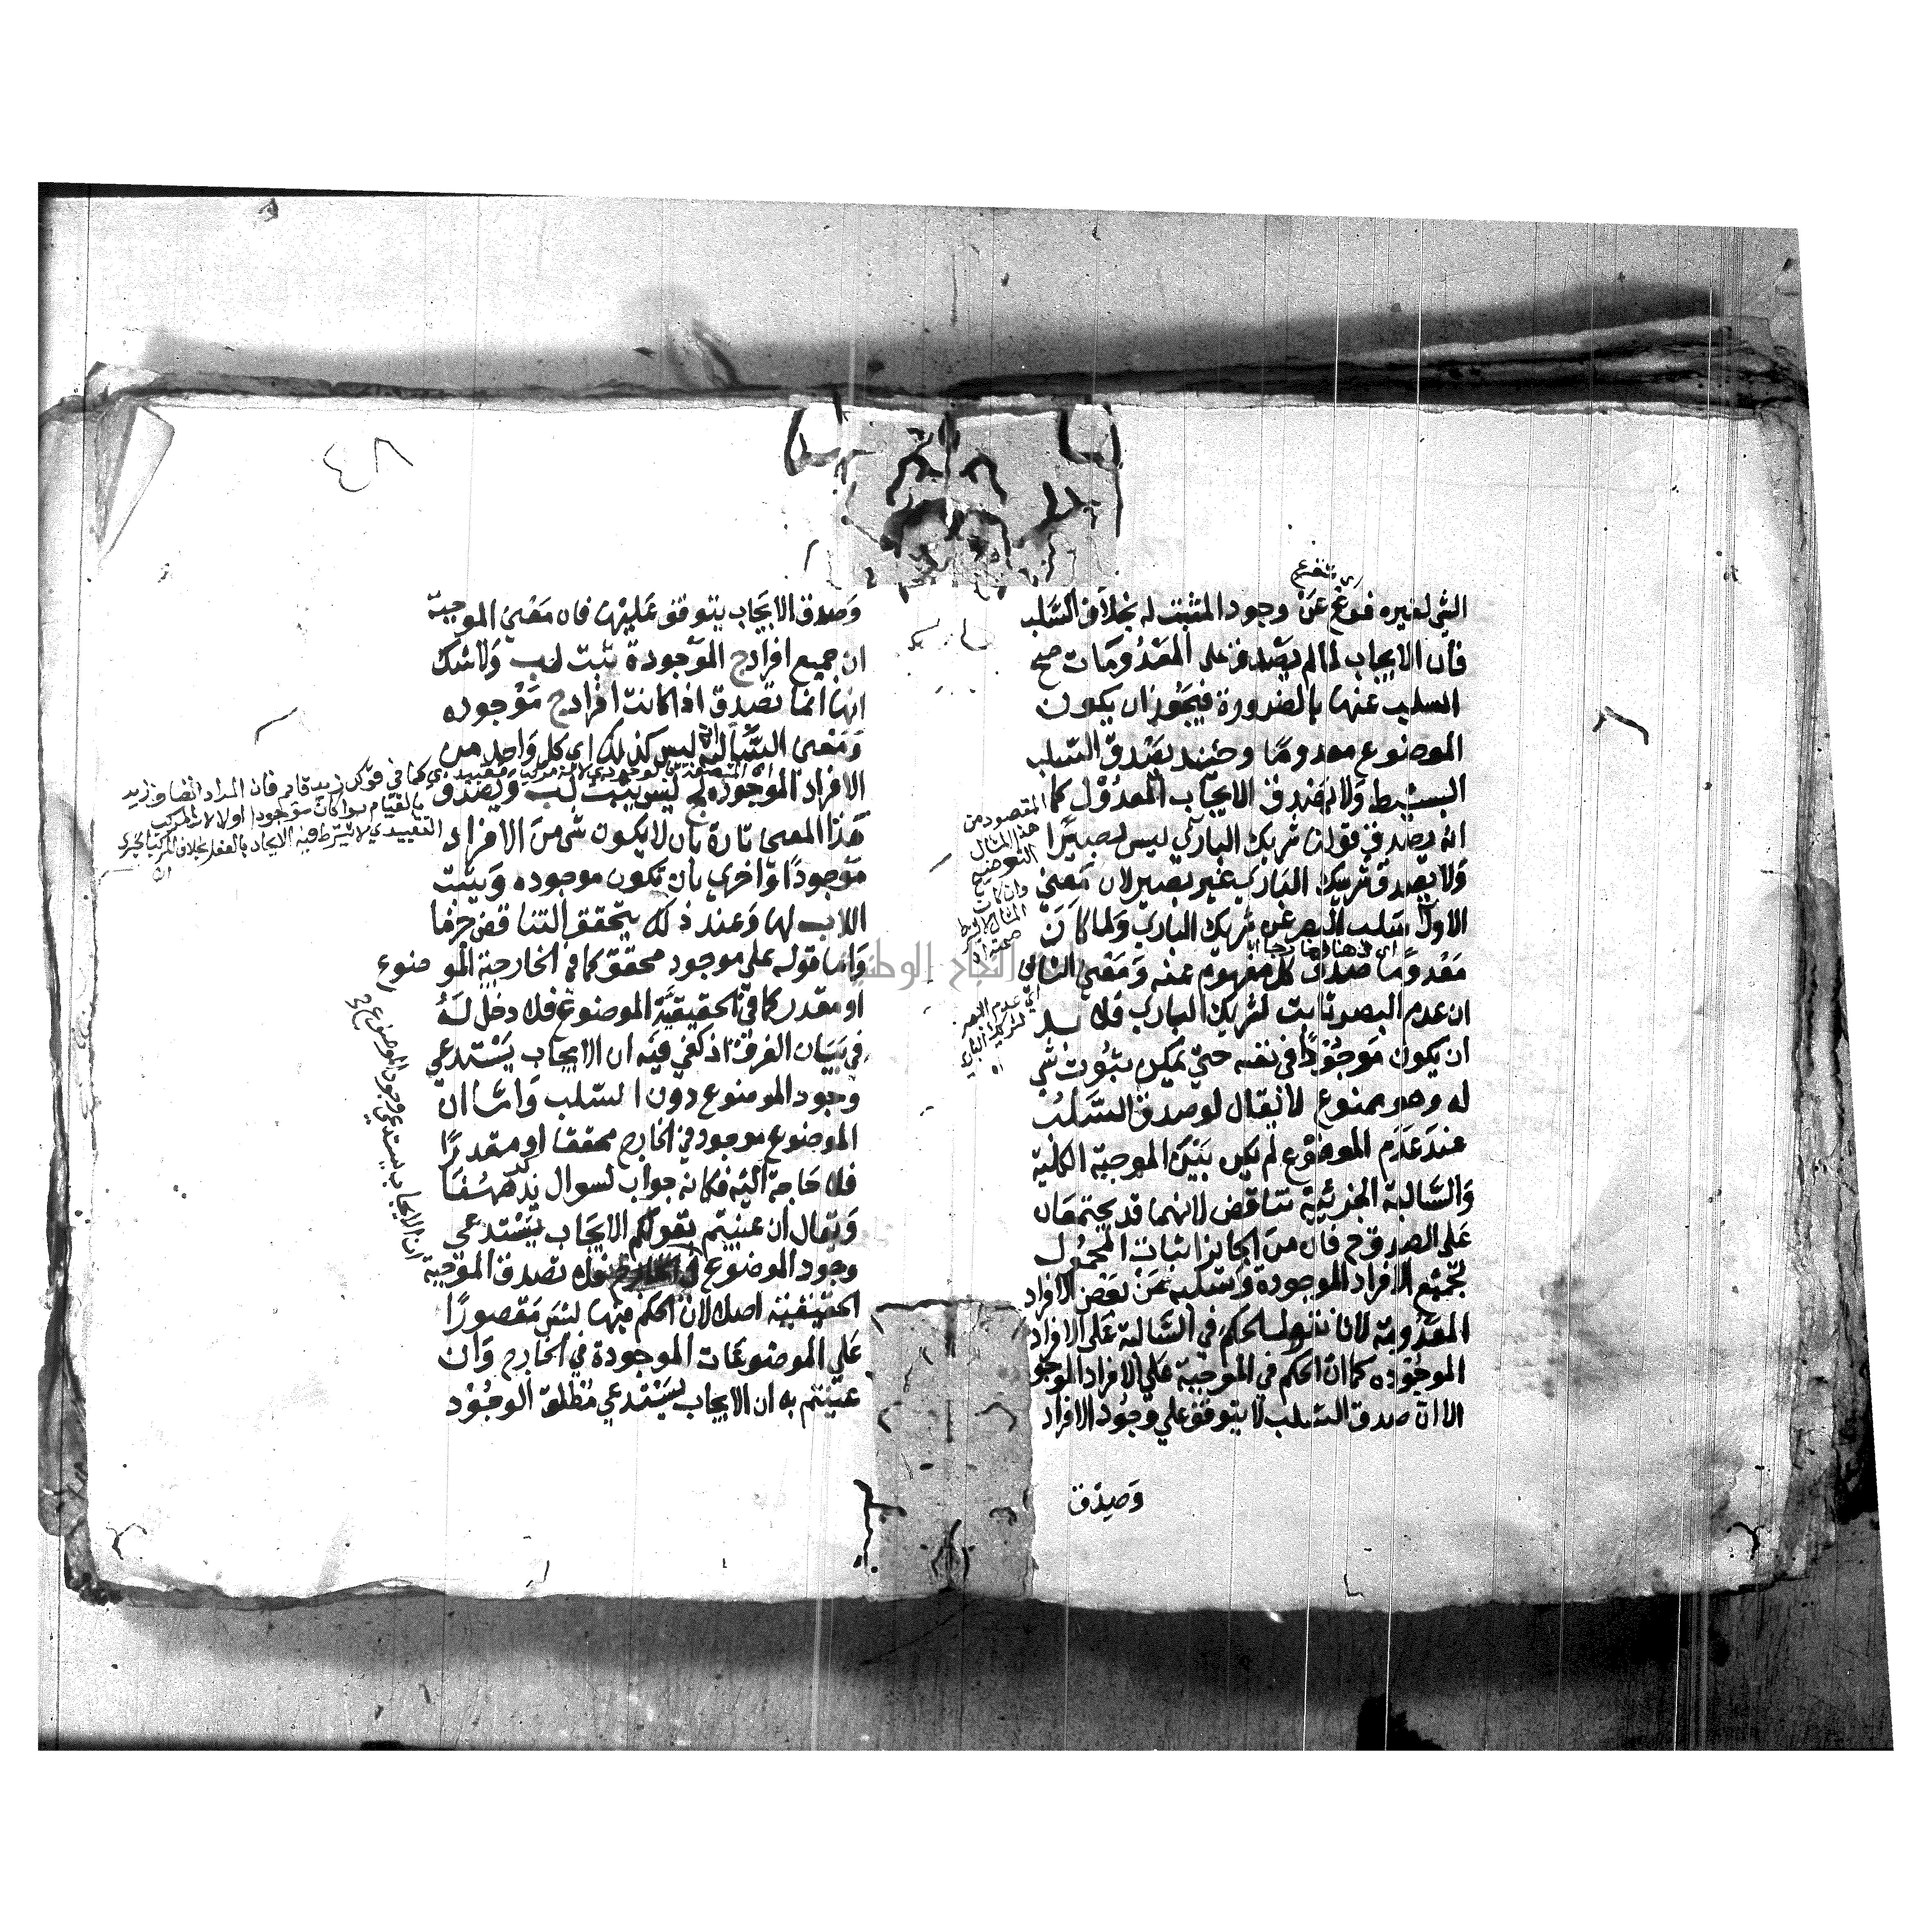 الشي لغيره فرع عن وجود المثبت له بخلاف السلب
فان الايجاب لما لم يصدق على المعدومات صح
السلب عنها بالضرورة فيجوز ان يكون
الموضوع معدوما وحينئذ يصدق السلب
البسيط ولا يصدق الايجاب المعدول كما
انه يصدق قولنا شريك الباري ليس ببصير
ولا يصدق شريك الباري غير بصير لان معنى
الاول سلب البصر عن شريك الباري ولما كان
معدوما صدق كل مفهوم عنه ومعنى الثاني
ان عدم البصر ثابت لشريك الباري فلا بد
ان يكون موجودا في نفسه حتي يمكن ثبوت شي
له وهو ممنوع لا يقال لو صدق السلب
عند عدم الموضوع لم يكن بين الموجبة الكلية
والسالبة الجزئية تناقض لانهما قد يجتمعان
على الصدق ح فان من الجائز اثبات المحمول
لجميع الافراد الموجودة وسلبه عن بعض الافراد
المعدومة لانا نقول الحكم في السالبة على الافراد
الموجوده كما ان الحكم في الموجبة علي الافراد الموجو
الا ان صدق السلب لا يتوقف علي وجود الافراد
وصدق
المقصود من
هذا المثال
التوضيح
وان كان
اي عدم البصر
لشريك الباري
٤٨
وصدق الايجاب يتوقف عليها فان معنى الموجبة
ان جميع افراد ج الموجودة يثبت لها ب ولا شك
انها انما تصدق اذا كانت افراد ج موجوده
ومعنى السالبة انه ليس كذلك اي كل واحد من
الافراد الموجوده لج ليس يثبت له ب ويصدق
هذا المعنى تارة بان لا يكون شي من الافراد
موجودا واخرى بان تكون موجوده ويثبت
اللاب لها وعند ذلك يتحقق التناقض جزما
واما قوله علي موجود محقق كما في الخارجية الموضوع
او مقدر كما في الحقيقية الموضوع فلا دخل له
في بيان الفرق اذ يكفي فيه ان الايجاب يستدعي
وجود الموضوع دون السلب واما ان
الموضوع موجود في الخارج محققا او مقدرا
فلا حاجة اليه فكانه جواب لسوال يذكر ههنا
ويقال ان عنيتم بقولكم الايجاب يستدعي
وجود الموضوع في الخارج فلا تصدق الموجبة
الحقيقية اصلا لان الحكم فيها ليس مقصورا
علي الموضوعات الموجودة في الخارج وان
عنيتم به ان الايجاب يستدعي مطلق الوجود
ان الايجاب يستدعي وجود الموضوع